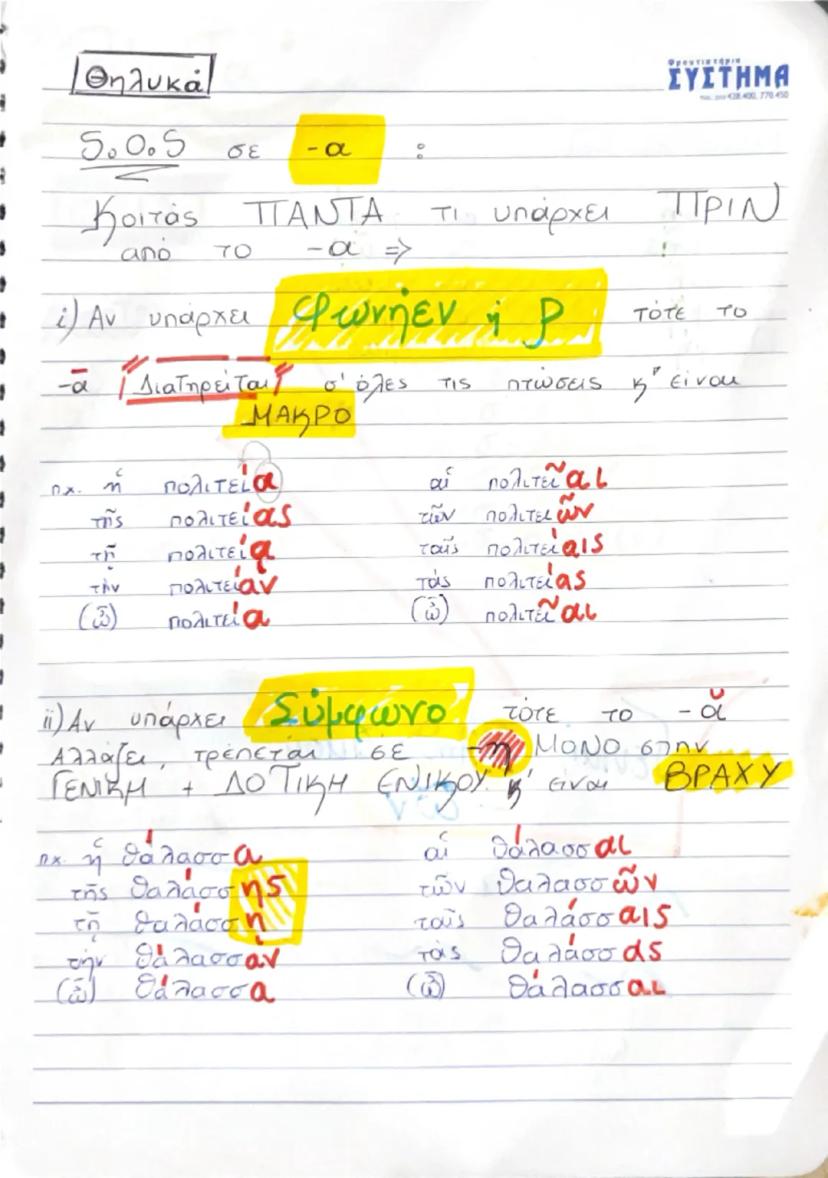 Θηλυκά
Φροντιστήρια
ΣΥΣΤΗΜΑ
S.O.S σε -α :
Κοιτάς ΠΑΝΤΑ τι υπάρχει ΠΡΙΝ
από το -α ⇒ !
i) Αν υπάρχει Φωνήεν ή ρ τότε το
-ᾱ Διατηρείται σ' όλες τις πτώσεις κ' είναι
ΜΑΚΡΟ
πχ. ἡ πολιτεία αἱ πολιτεῖαι
τῆς πολιτείας τῶν πολιτειῶν
τῇ πολιτείᾳ ταῖς πολιτείαις
τὴν πολιτείαν τὰς πολιτείας
(ὦ) πολιτεία (ὦ) πολιτεῖαι
ii) Αν υπάρχει Σύμφωνο τότε το -ᾰ
Αλλάζει, τρέπεται σε -η ΜΟΝΟ στην
ΓΕΝΙΚΗ + ΔΟΤΙΚΗ ΕΝΙΚΟΥ κ' είναι ΒΡΑΧΥ
πχ. ἡ θάλασσα αἱ θάλασσαι
τῆς θαλάσσης τῶν θαλασσῶν
τῇ θαλάσσῃ ταῖς θαλάσσαις
τὴν θάλασσαν τὰς θαλάσσας
(ὦ) θάλασσα (ὦ) θάλασσαι